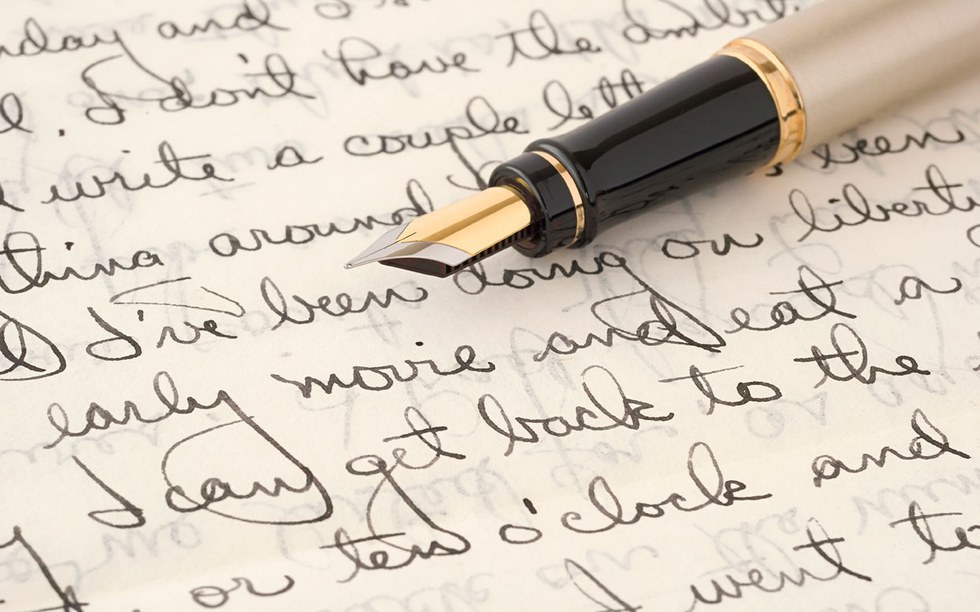 day and
. I don't have the
write a couple
thing around
I've been doing on liberty
early movie and eat a
I can get back to the
or ten o'clock and
I went to